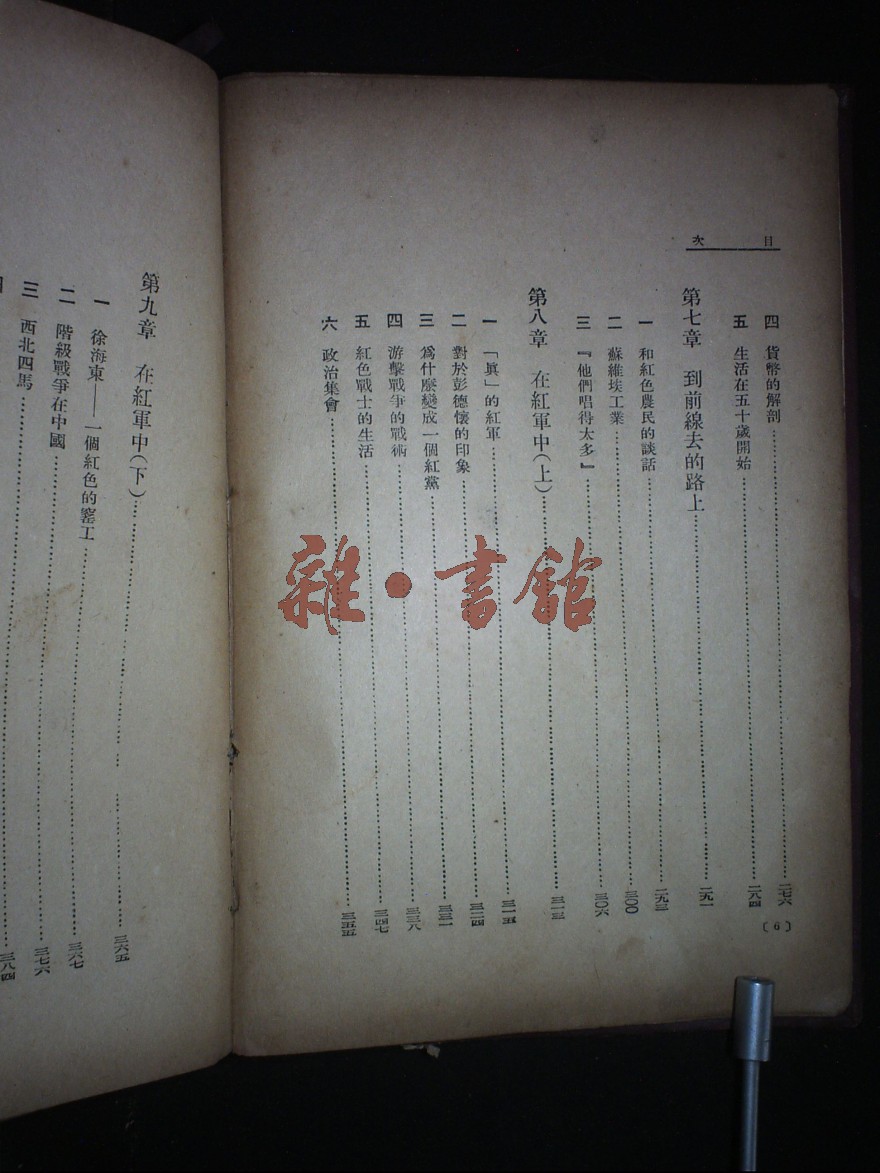 目次
四 貨幣的解剖……二七六
五 生活在五十歲開始……二八四
第七章 到前線去的路上……二九一
一 和紅色農民的談話……二九三
二 蘇維埃工業……三〇〇
三 『他們唱得太多』……三〇六
第八章 在紅軍中(上)……三一三
一 「眞」的紅軍……三一五
二 對於彭德懷的印象……三二四
三 爲什麼變成一個紅黨……三三一
四 游擊戰爭的戰術……三三八
五 紅色戰士的生活……三四七
六 政治集會……三五五
〔6〕
第九章 在紅軍中(下)……三六五
一 徐海東——一個紅色的窰工……三六七
二 階級戰爭在中國……三七六
三 西北四馬……三八四
雜·書館